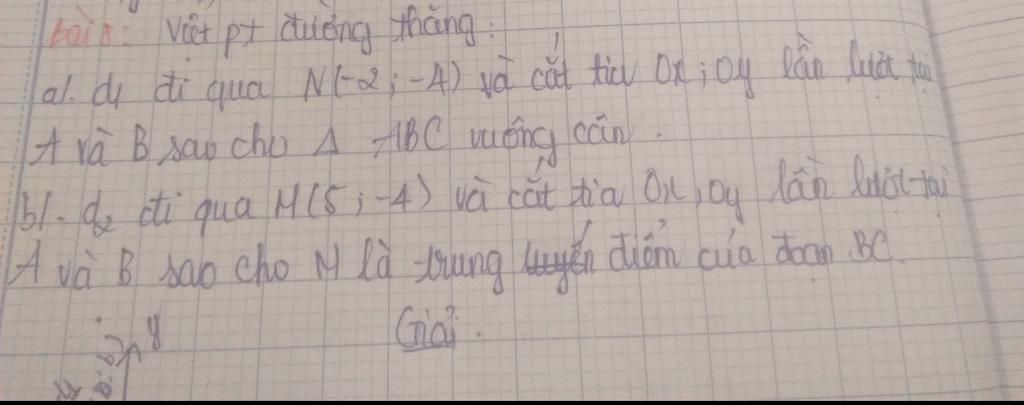 bài 8: Viết pt đường thẳng:
a/. d₁ đi qua N(-2; -4) và cắt tia Ox; Oy lần lượt tại
A và B sao cho Δ ABC vuông cân.
b/. d₂ đi qua M(5; -4) và cắt tia Ox, Oy lần lượt tại
A và B sao cho M là trung điểm của đoạn BC.
Giải.
y